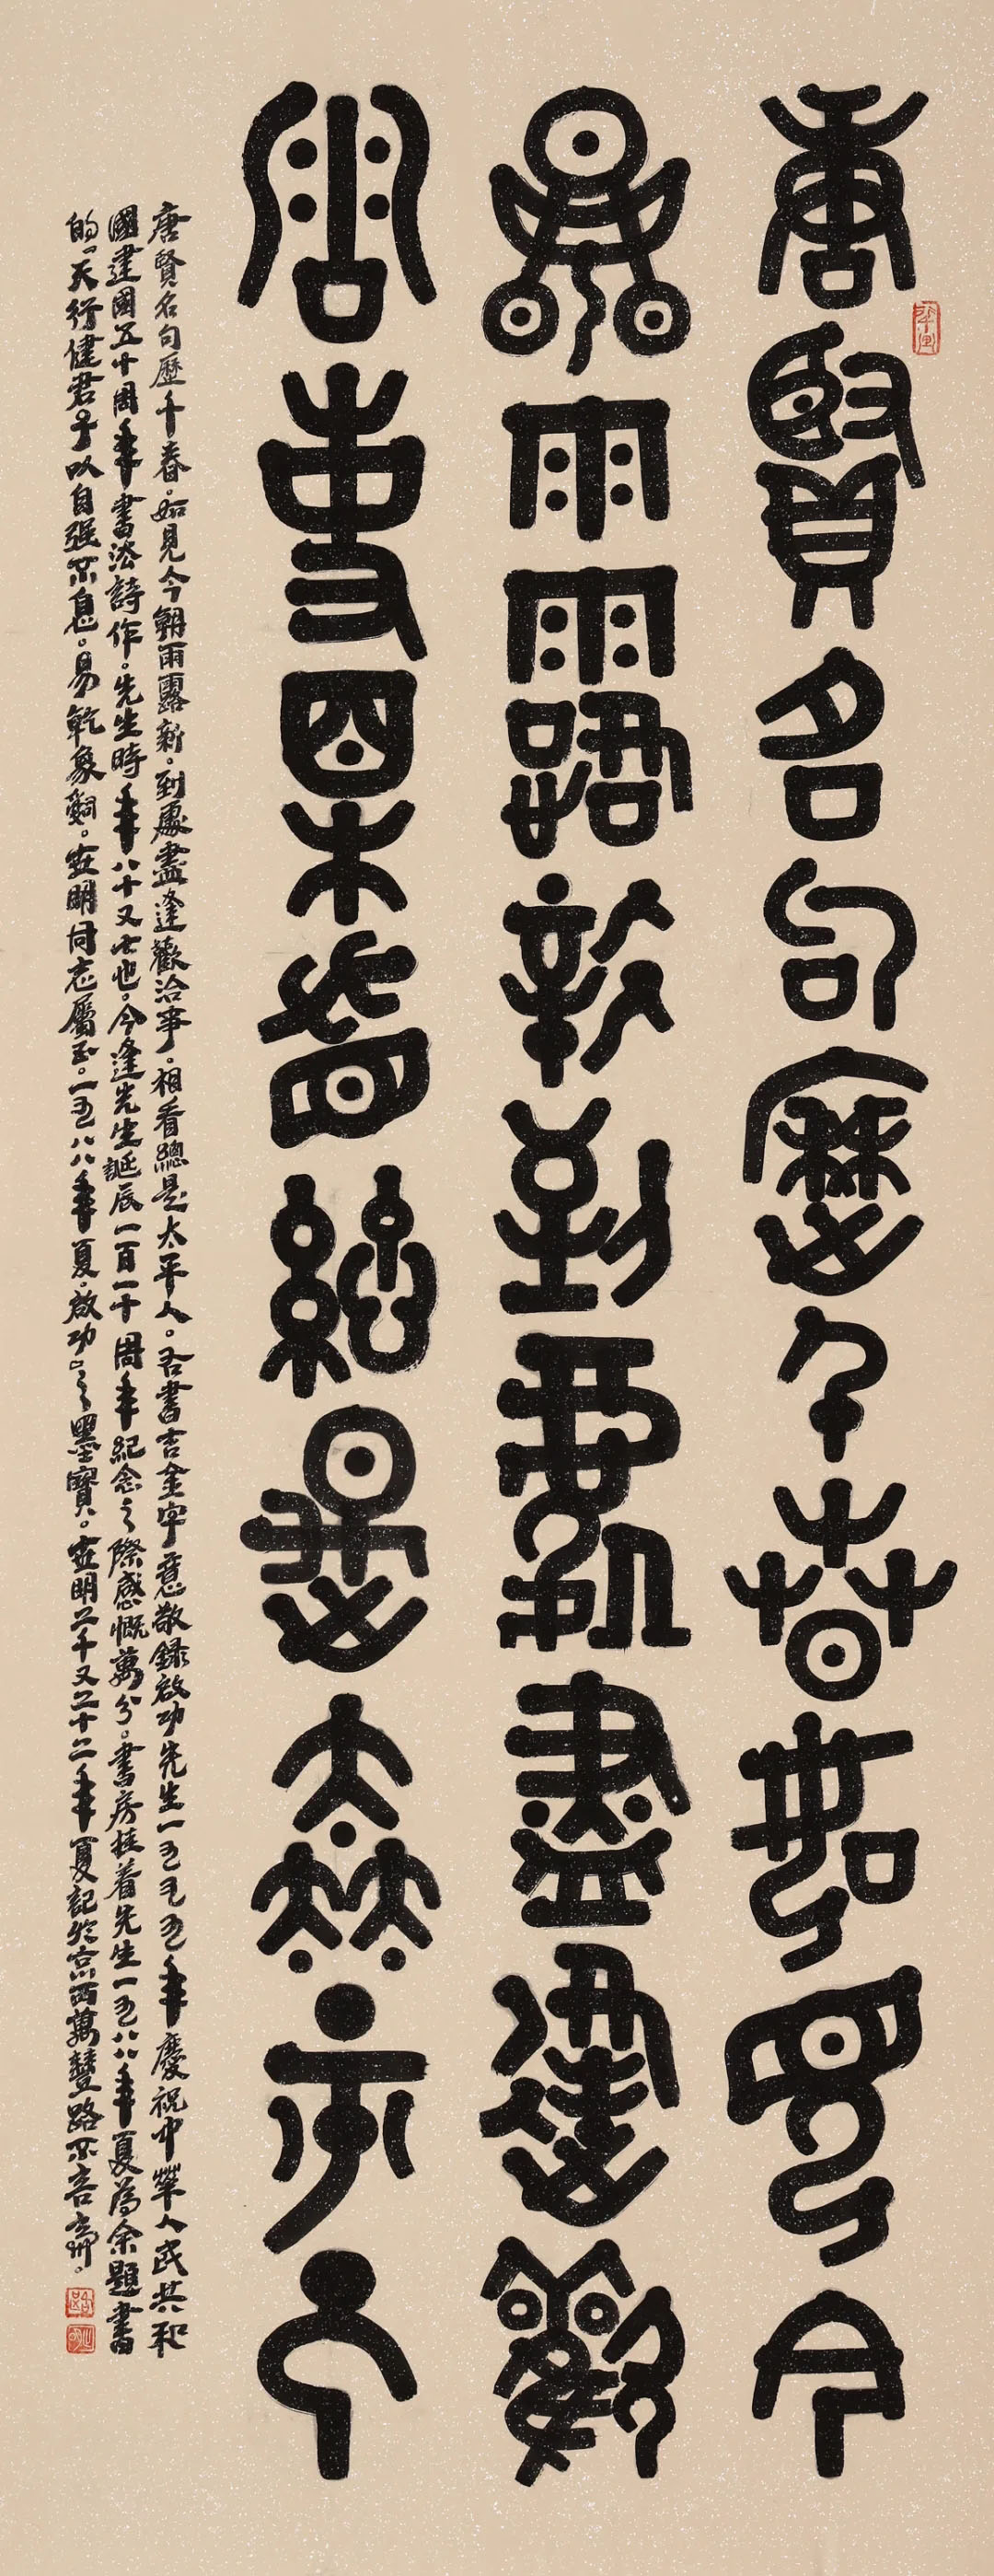 唐賢名句歷千春如見今
朝雨露新到處盡逢歡
洽事相看總是太平人
唐賢名句歷千春。如見今朝雨露新。到處盡逢歡洽事。相看總是太平人。右書吉金字意敬錄啟功先生一九九九年慶祝中華人民共和
國建國五十周年書法詩作。先生時年八十又七也。今逢先生誕辰一百一十周年紀念之際感慨萬分。書房挂着先生一九八八年夏為余題書
的『天行健君子以自强不息。易乾象辭。明同志屬正。一九八八年夏。啟功』之墨寶。明二千又二十二年夏記於京西萬豐路不齋。